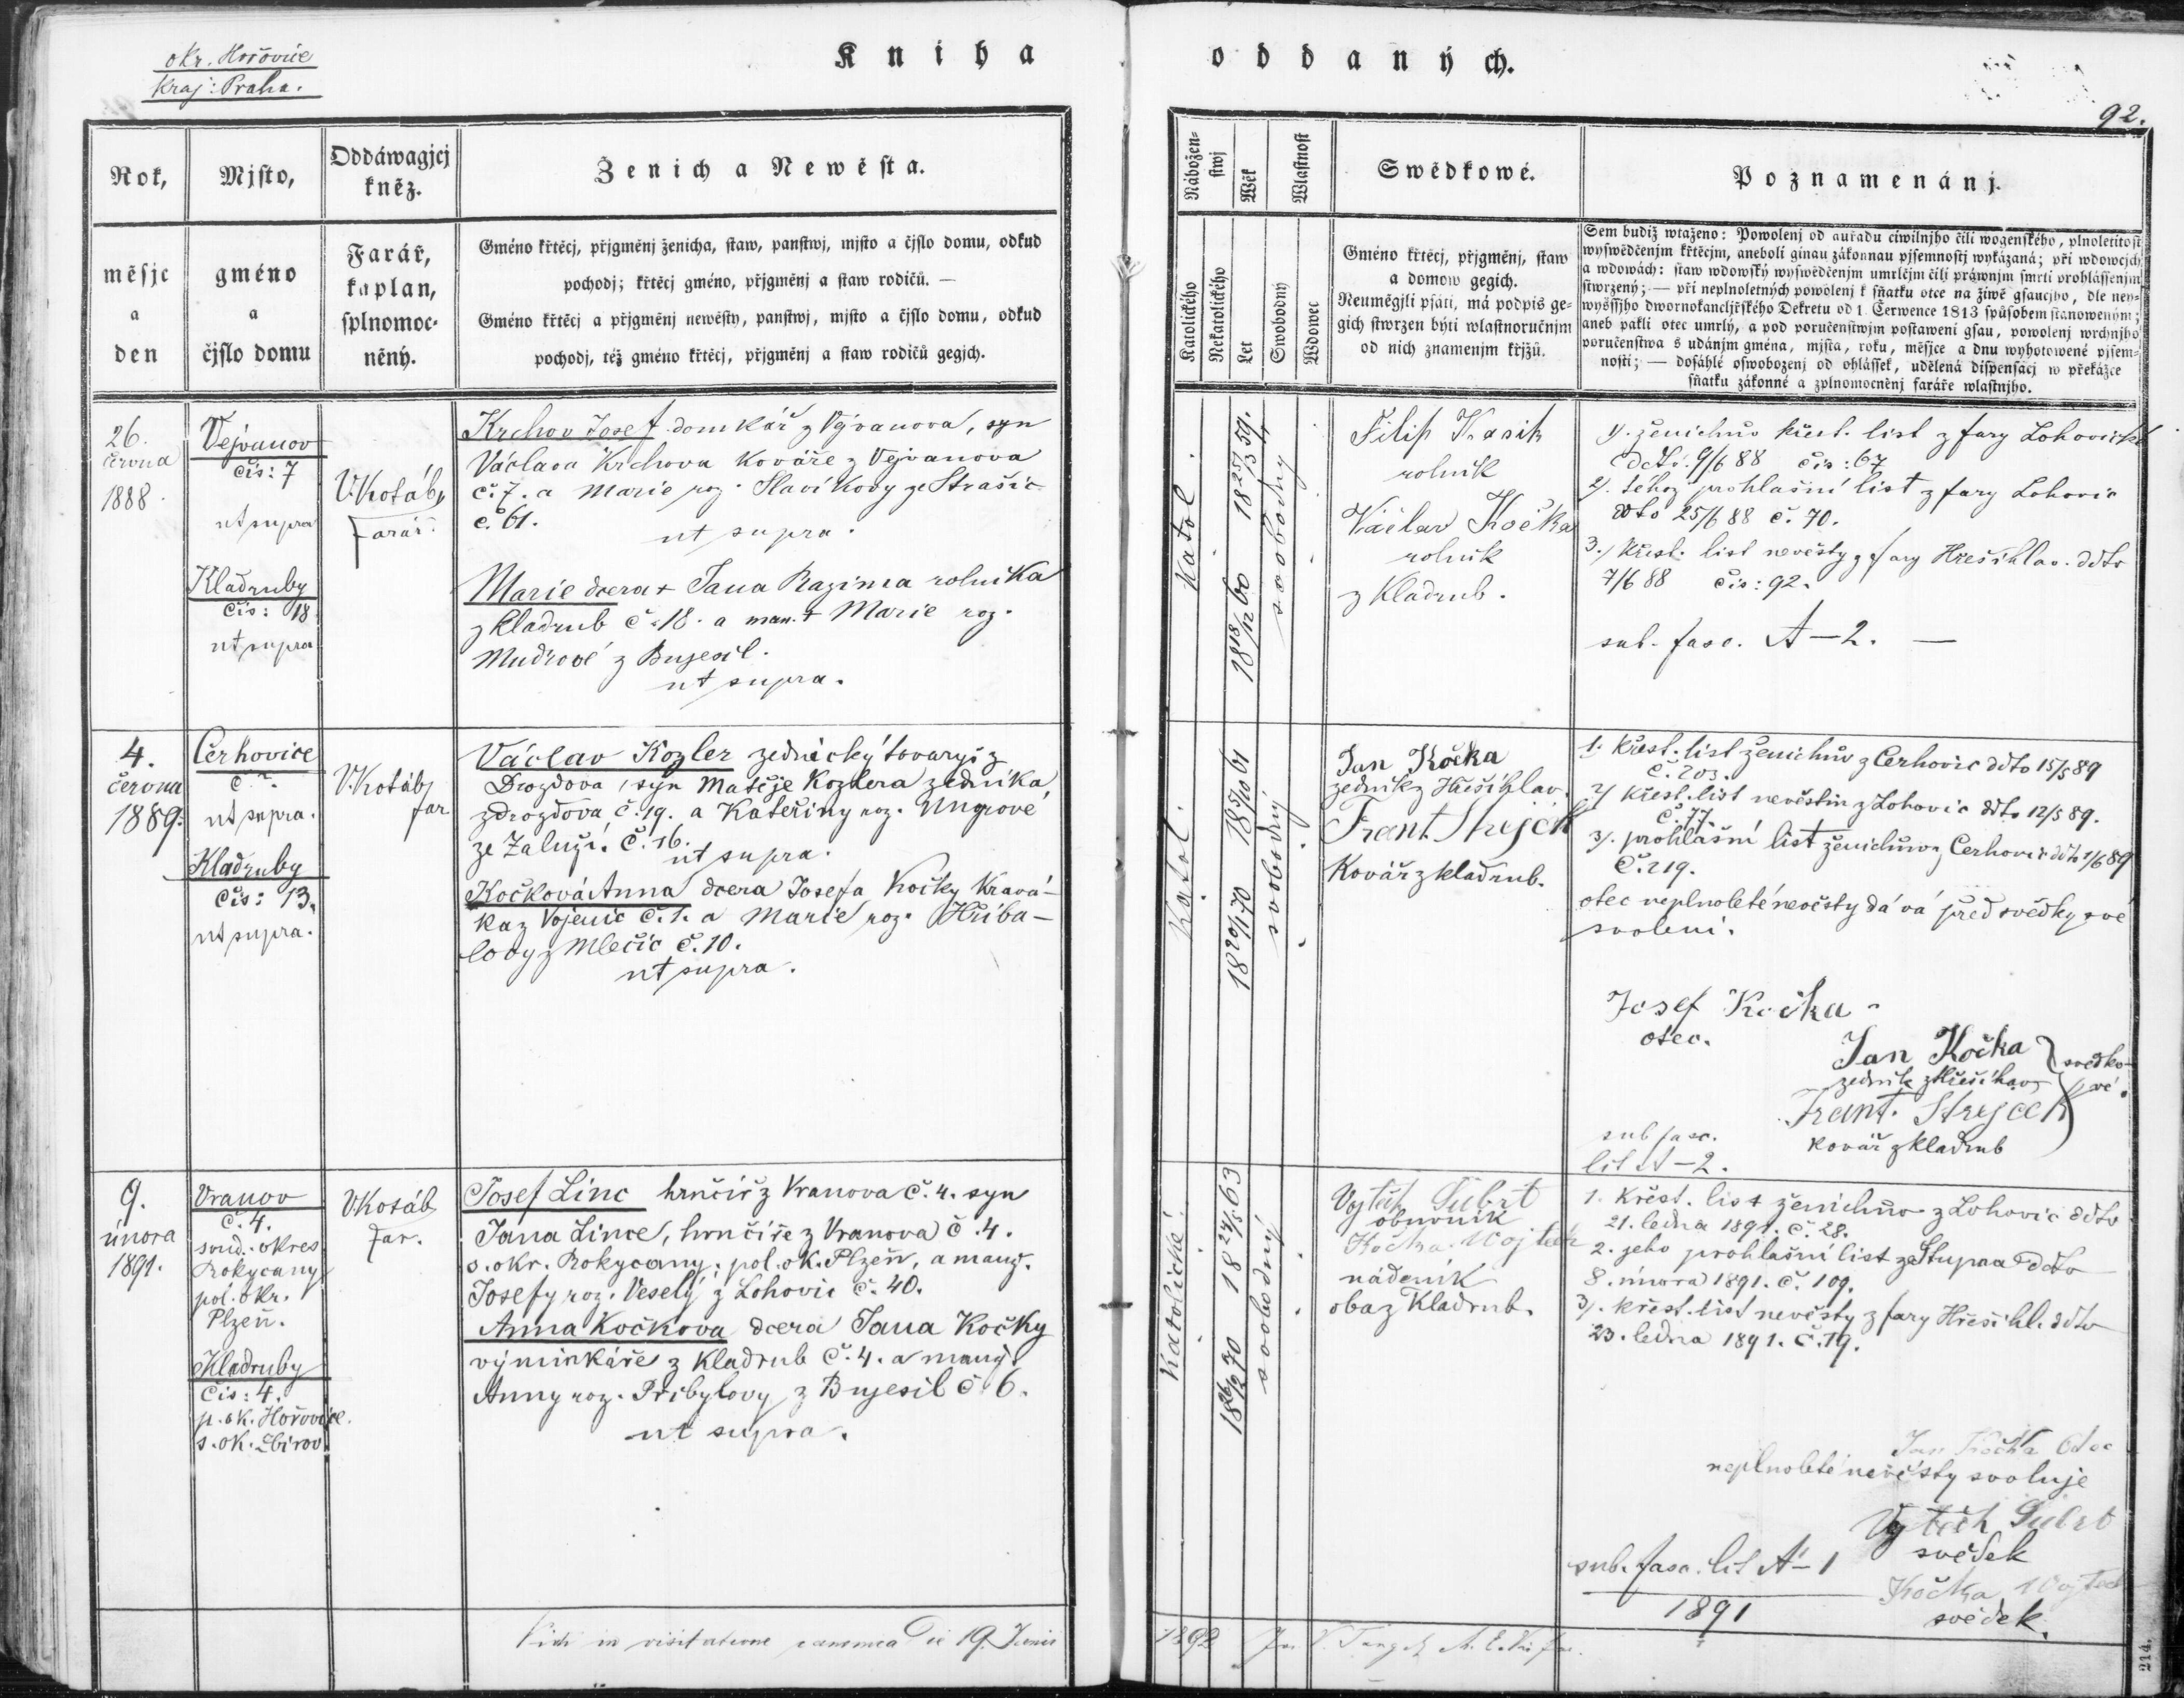 okr. Hořovice
Kraj: Praha.
Kniha oddaných.
92.
Rok,
měsjc
a
den
Mjsto,
gméno
a
čjslo domu
Oddáwagjcj
kněz.
Farář,
kaplan,
splnomoc-
něný.
Ženich a Newěsta.
Gméno křtěcj, přjgměnj ženicha, staw, panstwj, mjsto a čjslo domu, odkud
pochodj; křtěcj gméno, přjgměnj a staw rodičů. —
Gméno křtěcj a přjgměnj newěsty, panstwj, mjsto a čjslo domu, odkud
pochodj, též gméno křtěcj, přjgměnj a staw rodičů gegjch.
Nábožen-
stwj
Katolického
Nekatolického
Wěk
Let
Wlastnost
Swobodný
Wdowec
Swědkowé.
Gméno křtěcj, přjgměnj, staw
a domow gegich.
Neumějgjli psáti, má podpis ge-
gich stwrzen býti wlastnoručnjm
od nich znamenjm křjžů.
Poznamenánj.
Sem budiž wtaženo: Powolenj od auřadu ciwilnjho čili wogenského, plnoletitost
wyswědčenjm křtěcjm, aneboli ginau zákonnau pjsemnostj wykázaná; při wdowcjch
a wdowách: staw wdowský wyswědčenjm umrlčjm čili práwnjm smrti prohlášenjm
stwrzený; — při neplnoletných powolenj k sňatku otce na žiwě gsaucjho, dle ney-
wyššjho dwornokancljřského Dekretu od 1. Čerwence 1813 spůsobem stanoweným;
aneb pakli otec umrlý, a pod poručenstwjm postaweni gsau, powolenj wrchnjho
poručenstwa s udánjm gména, mjsta, roku, měsjce a dnu wyhotowené pjsem-
nosti; — dosáhlé oswobozenj od ohlášek, udělená dispensacj w překážce
sňatku zákonné a zplnomocněnj faráře wlastnjho.
26.
června
1888.
Vejvanov
čís: 7
ut supra
Kladruby
čís: 18
ut supra
V. Kotáb,
Farář.
Krchov Josef domkář z Vejvanova, syn
Václava Krchova Kováře z Vejvanova
č. 7. a Marie roz. Slavíkovy ze Strašic
č. 61.
ut supra.
Marie dcera + Jana Razima rolníka
z Kladrub č. 18. a man. + Marie roz.
Mudrové z Bujesil.
ut supra.
Katol.
18 25/3 59.
18 18/12 60
svobodný
Filip Krasik
rolník
Václav Kočka
rolník
z Kladrub.
1). ženichův křest. list z fary Lohovické
ddto. 9/6 88 čís: 67
2). téhož prohlašní list z fary Lohovic
ddto 25/6 88 č. 70.
3.) Křest. list nevěsty z fary Hřešihlav. ddto
7/6 88 čís: 92.
sub. fasc. A — 2. —
4.
června
1889.
Cerhovice
ut supra.
Kladruby
Čís: 13.
ut supra.
V. Kotáb,
far
Václav Kozler zednický tovaryš z
Drozdova, syn Matěje Kozlera zedníka
z Drozdova č. 19. a Kateřiny roz. Ungrové
ze Zaluží. č. 16.
ut supra.
Kočková Anna dcera Josefa Kočky Kravá-
ka z Vojenic č. 1. a Marie roz. Hříba-
lovy z Mlečic č. 10.
ut supra.
Katol.
18 5/10 61
18 20/1 70
svobodný
Jan Kočka
zedník z Hřešihlav.
Frant. Strejček
Kovář z kladrub.
1. Křest. list ženichův z Cerhovic ddto 15/5 89
č. 203.
2) Křest. list nevěstin z Lohovic ddto 12/5 89.
č. 77.
3). prohlašní list ženichův z Cerhovic ddto 1/6 89
č. 219.
otec neplnoleté nevěsty dává před svědky své
svolení.
Josef Kočka
otec.
Jan Kočka
zedník z Hřešihlav
Frant. Strejček
kovář z kladrub
svědko-
vé.
sub fasc.
lit A — 2.
9.
února
1891.
Vranov
č. 4.
soud. okres
Rokycany
pol. okr.
Plzeň.
Kladruby
Čís: 4.
p. ok. Hořovice.
s. ok. Zbirov
V. Kotáb
far.
Josef Linc hrnčíř z Vranova č. 4. syn
Jana Lince, hrnčíře z Vranova č. 4.
s. okr. Rokycany. pol. ok. Plzeň, a manž.
Josefy roz. Veselý z Lohovic č. 40.
Anna Kočkova dcera Jana Kočky
výminkáře z Kladrub č. 4. a manž.
Anny roz. Přibylovy z Bujesil č. 6.
ut supra.
Katolické.
18 24/5 63
18 26/12 70
svobodný
Vojtěch Šubrt
obuvník
Kočka Wojtěch
nádeník
oba z Kladrub.
1. Křest. list ženichův z Lohovic ddto
21. ledna 1891. č. 28.
2. jeho prohlašní list ze Stupna ddto
8. února 1891. č. 109.
3). křest. list nevěsty z fary Hřešihl. ddto
23. ledna 1891. č. 19.
Jan Kočka otec
neplnoleté nevěsty svoluje
Vojtěch Šubrt
svědek
Kočka Wojtěch
svědek.
sub. fasc. lit A — 1
1891
Vidi in visitatione canonica Die 19. Junii
1892
214.